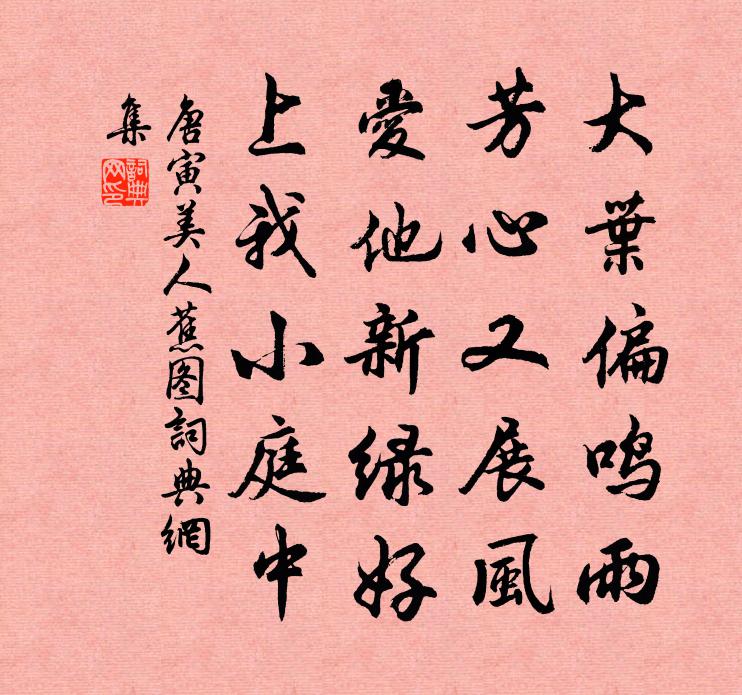 大葉偏鸣雨
芳心又展風
愛他新绿好
上我小庭中
唐寅美人蕉图詞典網
集
詞典网印